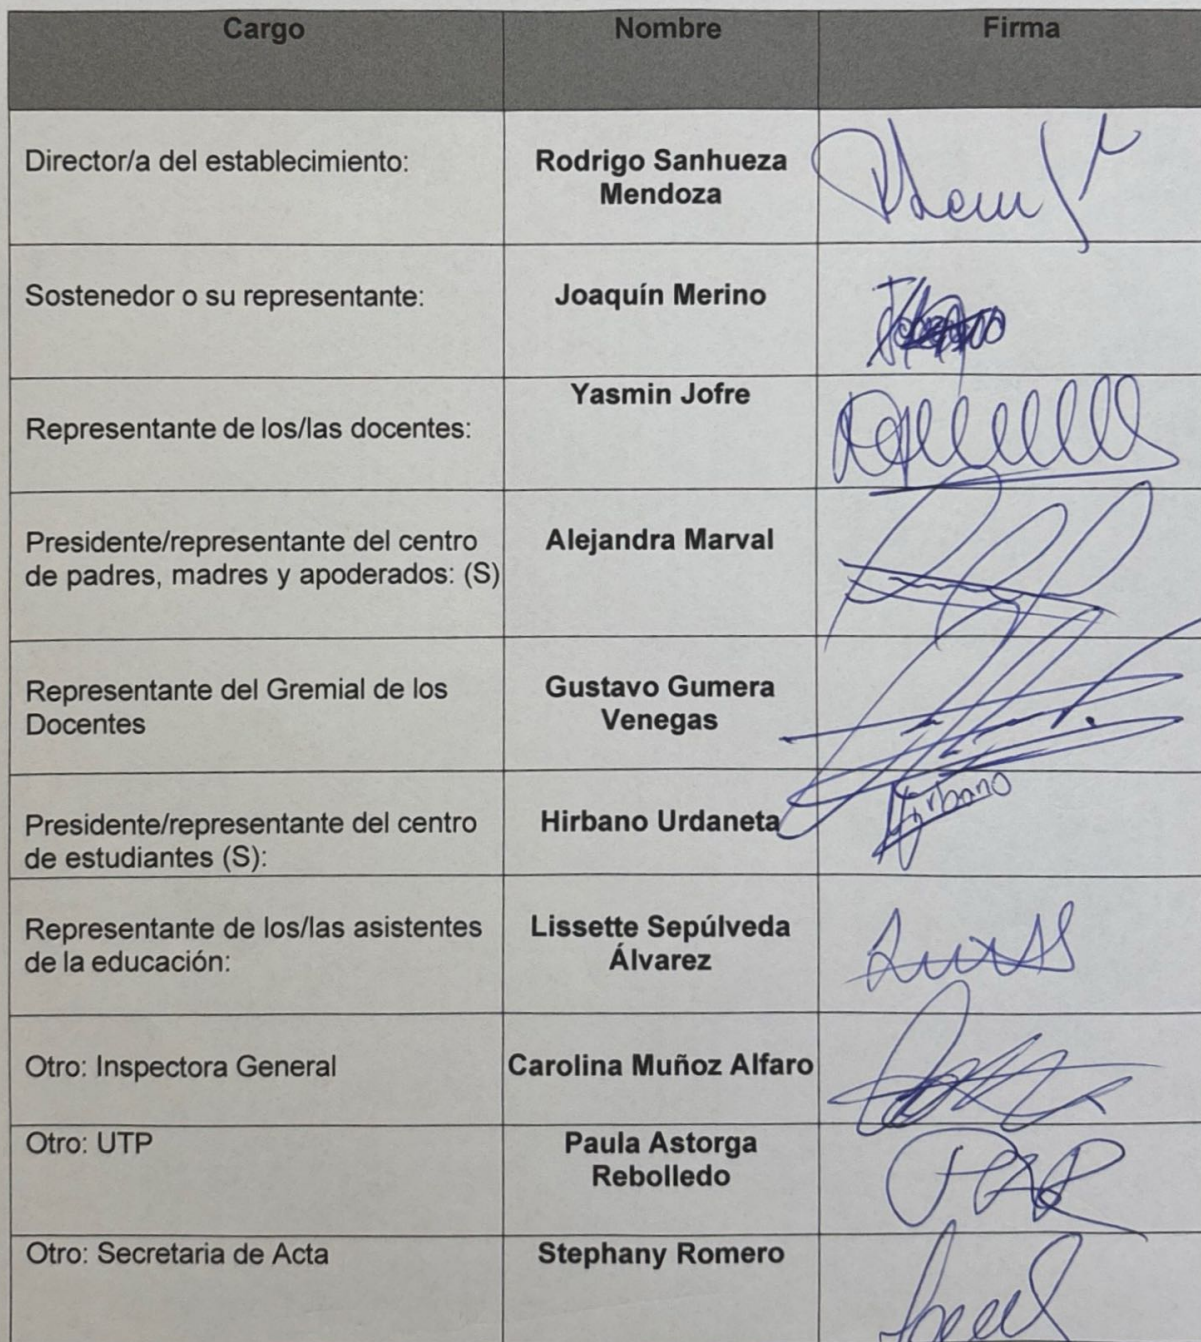 Cargo Nombre Firma
Director/a del establecimiento:
Rodrigo Sanhueza
Mendoza
Sostenedor o su representante:
Joaquín Merino
Representante de los/las docentes:
Yasmin Jofre
Presidente/representante del centro
de padres, madres y apoderados: (S)
Alejandra Marval
Representante del Gremial de los
Docentes
Gustavo Gumera
Venegas
Presidente/representante del centro
de estudiantes (S):
Hirbano Urdaneta
Hirbano
Representante de los/las asistentes
de la educación:
Lissette Sepúlveda
Álvarez
Otro: Inspectora General
Carolina Muñoz Alfaro
Otro: UTP
Paula Astorga
Rebolledo
Otro: Secretaria de Acta
Stephany Romero